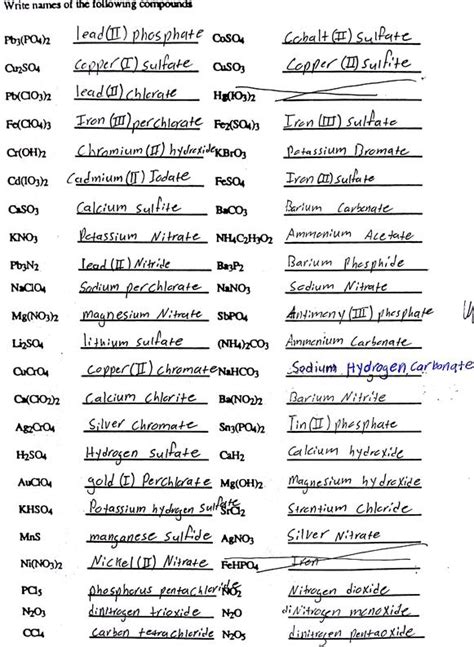 Write names of the following compounds
Pb3(PO4)2 lead(II) phosphate CoSO4 Cobalt (II) sulfate
Cu2SO4 Copper(I) sulfate CuSO3 Copper (II) sulfite
Pb(ClO3)2 lead(II) chlorate Hg(IO3)2
Fe(ClO4)3 Iron (III) perchlorate Fe2(SO4)3 Iron (III) sulfate
Cr(OH)2 Chromium(II) hydroxide KBrO3 Potassium Bromate
Cd(IO3)2 Cadmium (II) Iodate FeSO4 Iron (II) sulfate
CaSO3 Calcium sulfite BaCO3 Barium Carbonate
KNO3 Potassium Nitrate NH4C2H3O2 Ammonium Acetate
Pb3N2 lead (II) Nitride Ba3P2 Barium Phosphide
NaClO4 Sodium perchlorate NaNO3 Sodium Nitrate
Mg(NO3)2 magnesium Nitrate SbPO4 Antimony (III) phosphate
Li2SO4 lithium sulfate (NH4)2CO3 Ammonium Carbonate
CuCrO4 Copper(II) chromate NaHCO3 Sodium Hydrogen Carbonate
Ca(ClO2)2 Calcium chlorite Ba(NO2)2 Barium Nitrite
Ag2CrO4 Silver chromate Sn3(PO4)2 Tin(II) phosphate
H2SO4 Hydrogen sulfate CaH2 Calcium hydroxide
AuClO4 gold (I) Perchlorate Mg(OH)2 Magnesium hydroxide
KHSO4 Potassium hydrogen sulfate SrCl2 Strontium Chloride
MnS manganese sulfide AgNO3 Silver Nitrate
Ni(NO3)2 Nickel (II) Nitrate FeHPO4 Iron
PCl5 phosphorus pentachloride NO2 Nitrogen dioxide
N2O3 dinitrogen trioxide N2O diNitrogen monoxide
CCl4 carbon tetrachloride N2O5 dinitrogen pentaoxide